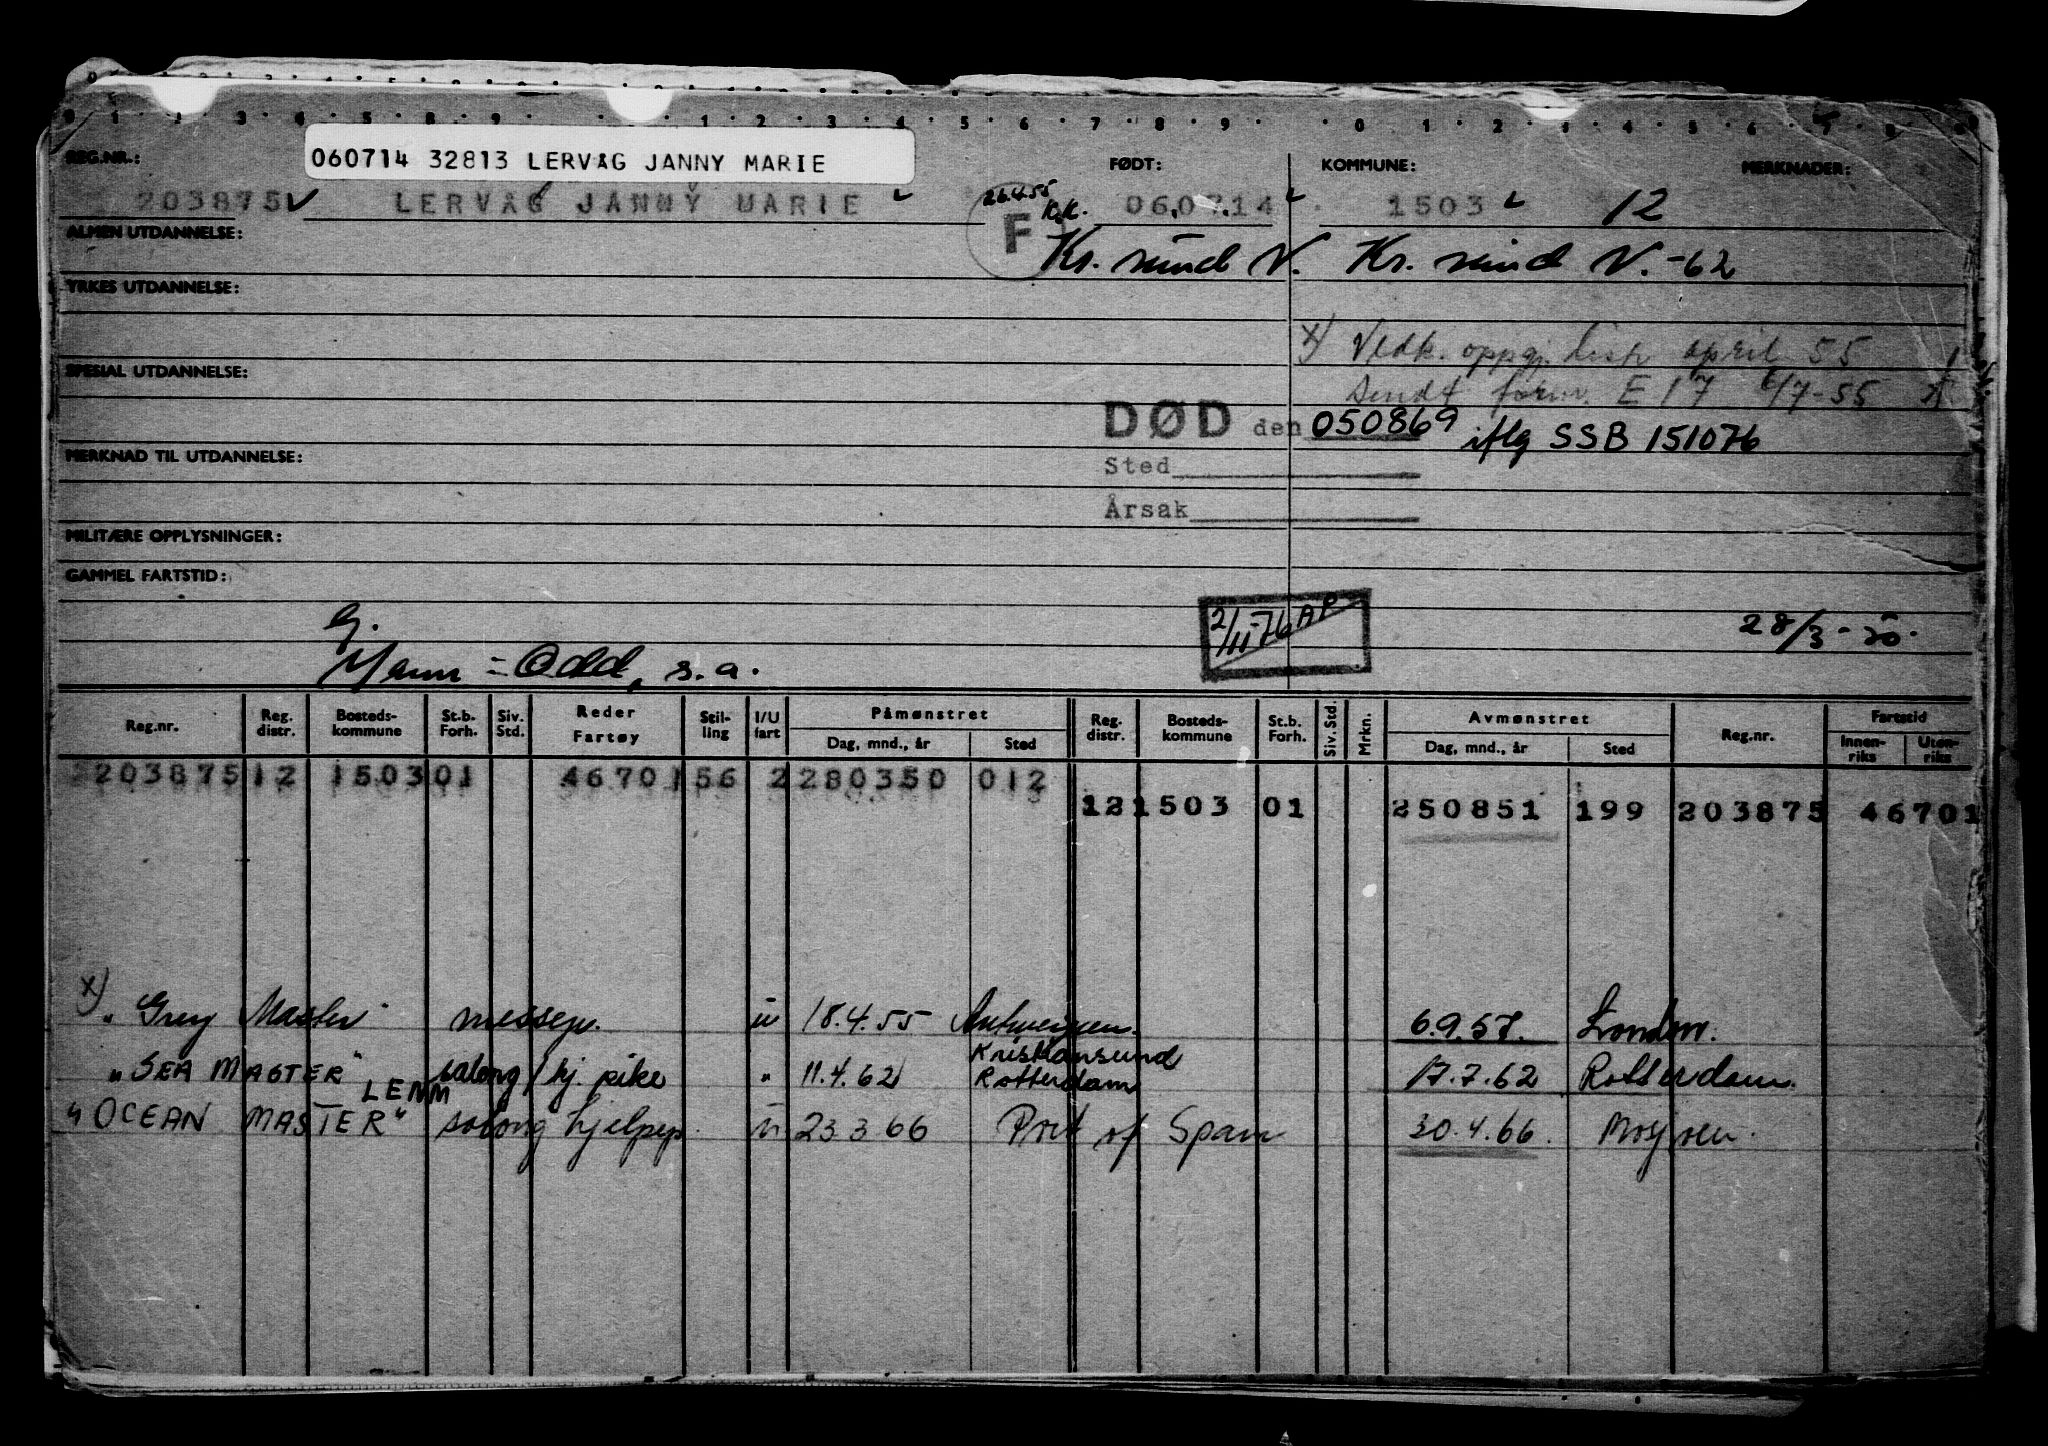 060714 32813 LERVAG JANNY MARIE
REG.NR.: FØDT: KOMMUNE: MERKNADER:
203875 LERVAG JANNY MARIE 26.4.55 06.07.14 1503 12
F
ALMEN UTDANNELSE: Kr. sund N. Kr. sund N. -62
YRKES UTDANNELSE:
x) Vedk. oppgj. list april 55
SPESIAL UTDANNELSE: Sendt form. E 17 6/7-55
DØD den 050869 iflg SSB 151076
MERKNAD TIL UTDANNELSE: Sted
Årsak
MILITÆRE OPPLYSNINGER:
GAMMEL FARTSTID:
G. 2/11-76 AP 28/3-50.
Mann = Odd, s.a.
Reg.nr. Reg. distr. Bosteds-kommune St.b. Forh. Siv. Std. Reder Fartøy Stil-ling I/U fart Påmønstret Dag, mnd., år Sted Reg. distr. Bosteds-kommune St.b. Forh. Siv. Std. Mrkn. Avmønstret Dag, mnd., år Sted Reg.nr. Fartstid Innen-riks Uten-riks
203875 12 1503 01 46701 56 2 280350 012
12 1503 01 250851 199 203875 46701
x) "Grey Master" messep. u 18.4.55 Antwerpen. 6.9.57. London.
"SEA MASTER" salong/hj. pike " 11.4.62 Kristiansund Rotterdam 17.7.62 Rotterdam.
LENM
"OCEAN MASTER" salong hjelpep. u 23 3 66 Port of Spain 30.4.66. Mosjøen.